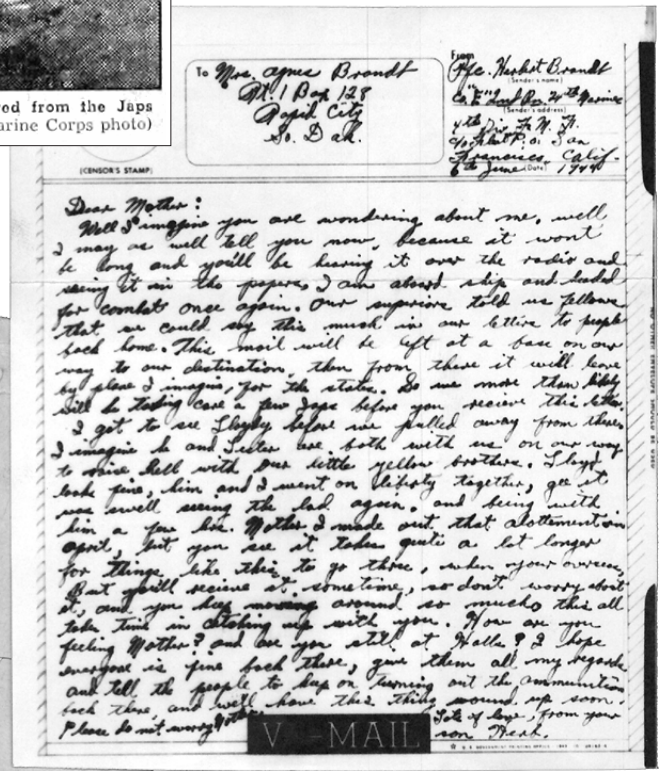 ed from the Japs
arine Corps photo)
To Mrs. Agnes Brandt
Rt. 1 Box 128
Rapid City
So. Dak.
(CENSOR'S STAMP)
From
Pfc. Herbert Brandt
(Sender's name)
Co. "E" 2nd Bn. 24th Marines
(Sender's address)
4th Div. F. M. F.
c/o Fleet P.o. San
Francisco, Calif.
6th June (Date) 1944
Dear Mother:
Well I imagine you are wondering about me, well
I may as well tell you now, because it wont
be long and you'll be hearing it over the radio and
seeing it in the papers, I am aboard ship and headed
for combat once again. Our superiors told us fellows
that we could say this much in our letters to people
back home. This mail will be left at a base on our
way to our destination, then from there it will leave
by plane I imagine, for the states. So we more than likely
will be taking care a few Japs before you recieve this letter.
I got to see before we pulled away from there
I imagine he and Lester are both with us on our way
to raise hell with our little yellow brothers. Lloyd
looks fine, him and I went on liberty together, gee it
was swell seeing the lad again, and being with
him a few hrs. Mother I made out that alottement in
april, but you see it takes quite a lot longer
for things like this to go thro, when your overseas,
But you'll recieve it sometime, so dont worry about
it, and you keep moving around so much, this all
takes time in catching up with you. How are you
feeling Mother? and are you still at Halls? I hope
everyone is fine back there, give them all my regards
and tell the people to keep on turning out the ammunition
back there, and we'll have this thing wound up soon.
Please do not worry Mother. Lots of love, from your
son Herb.
V-MAIL